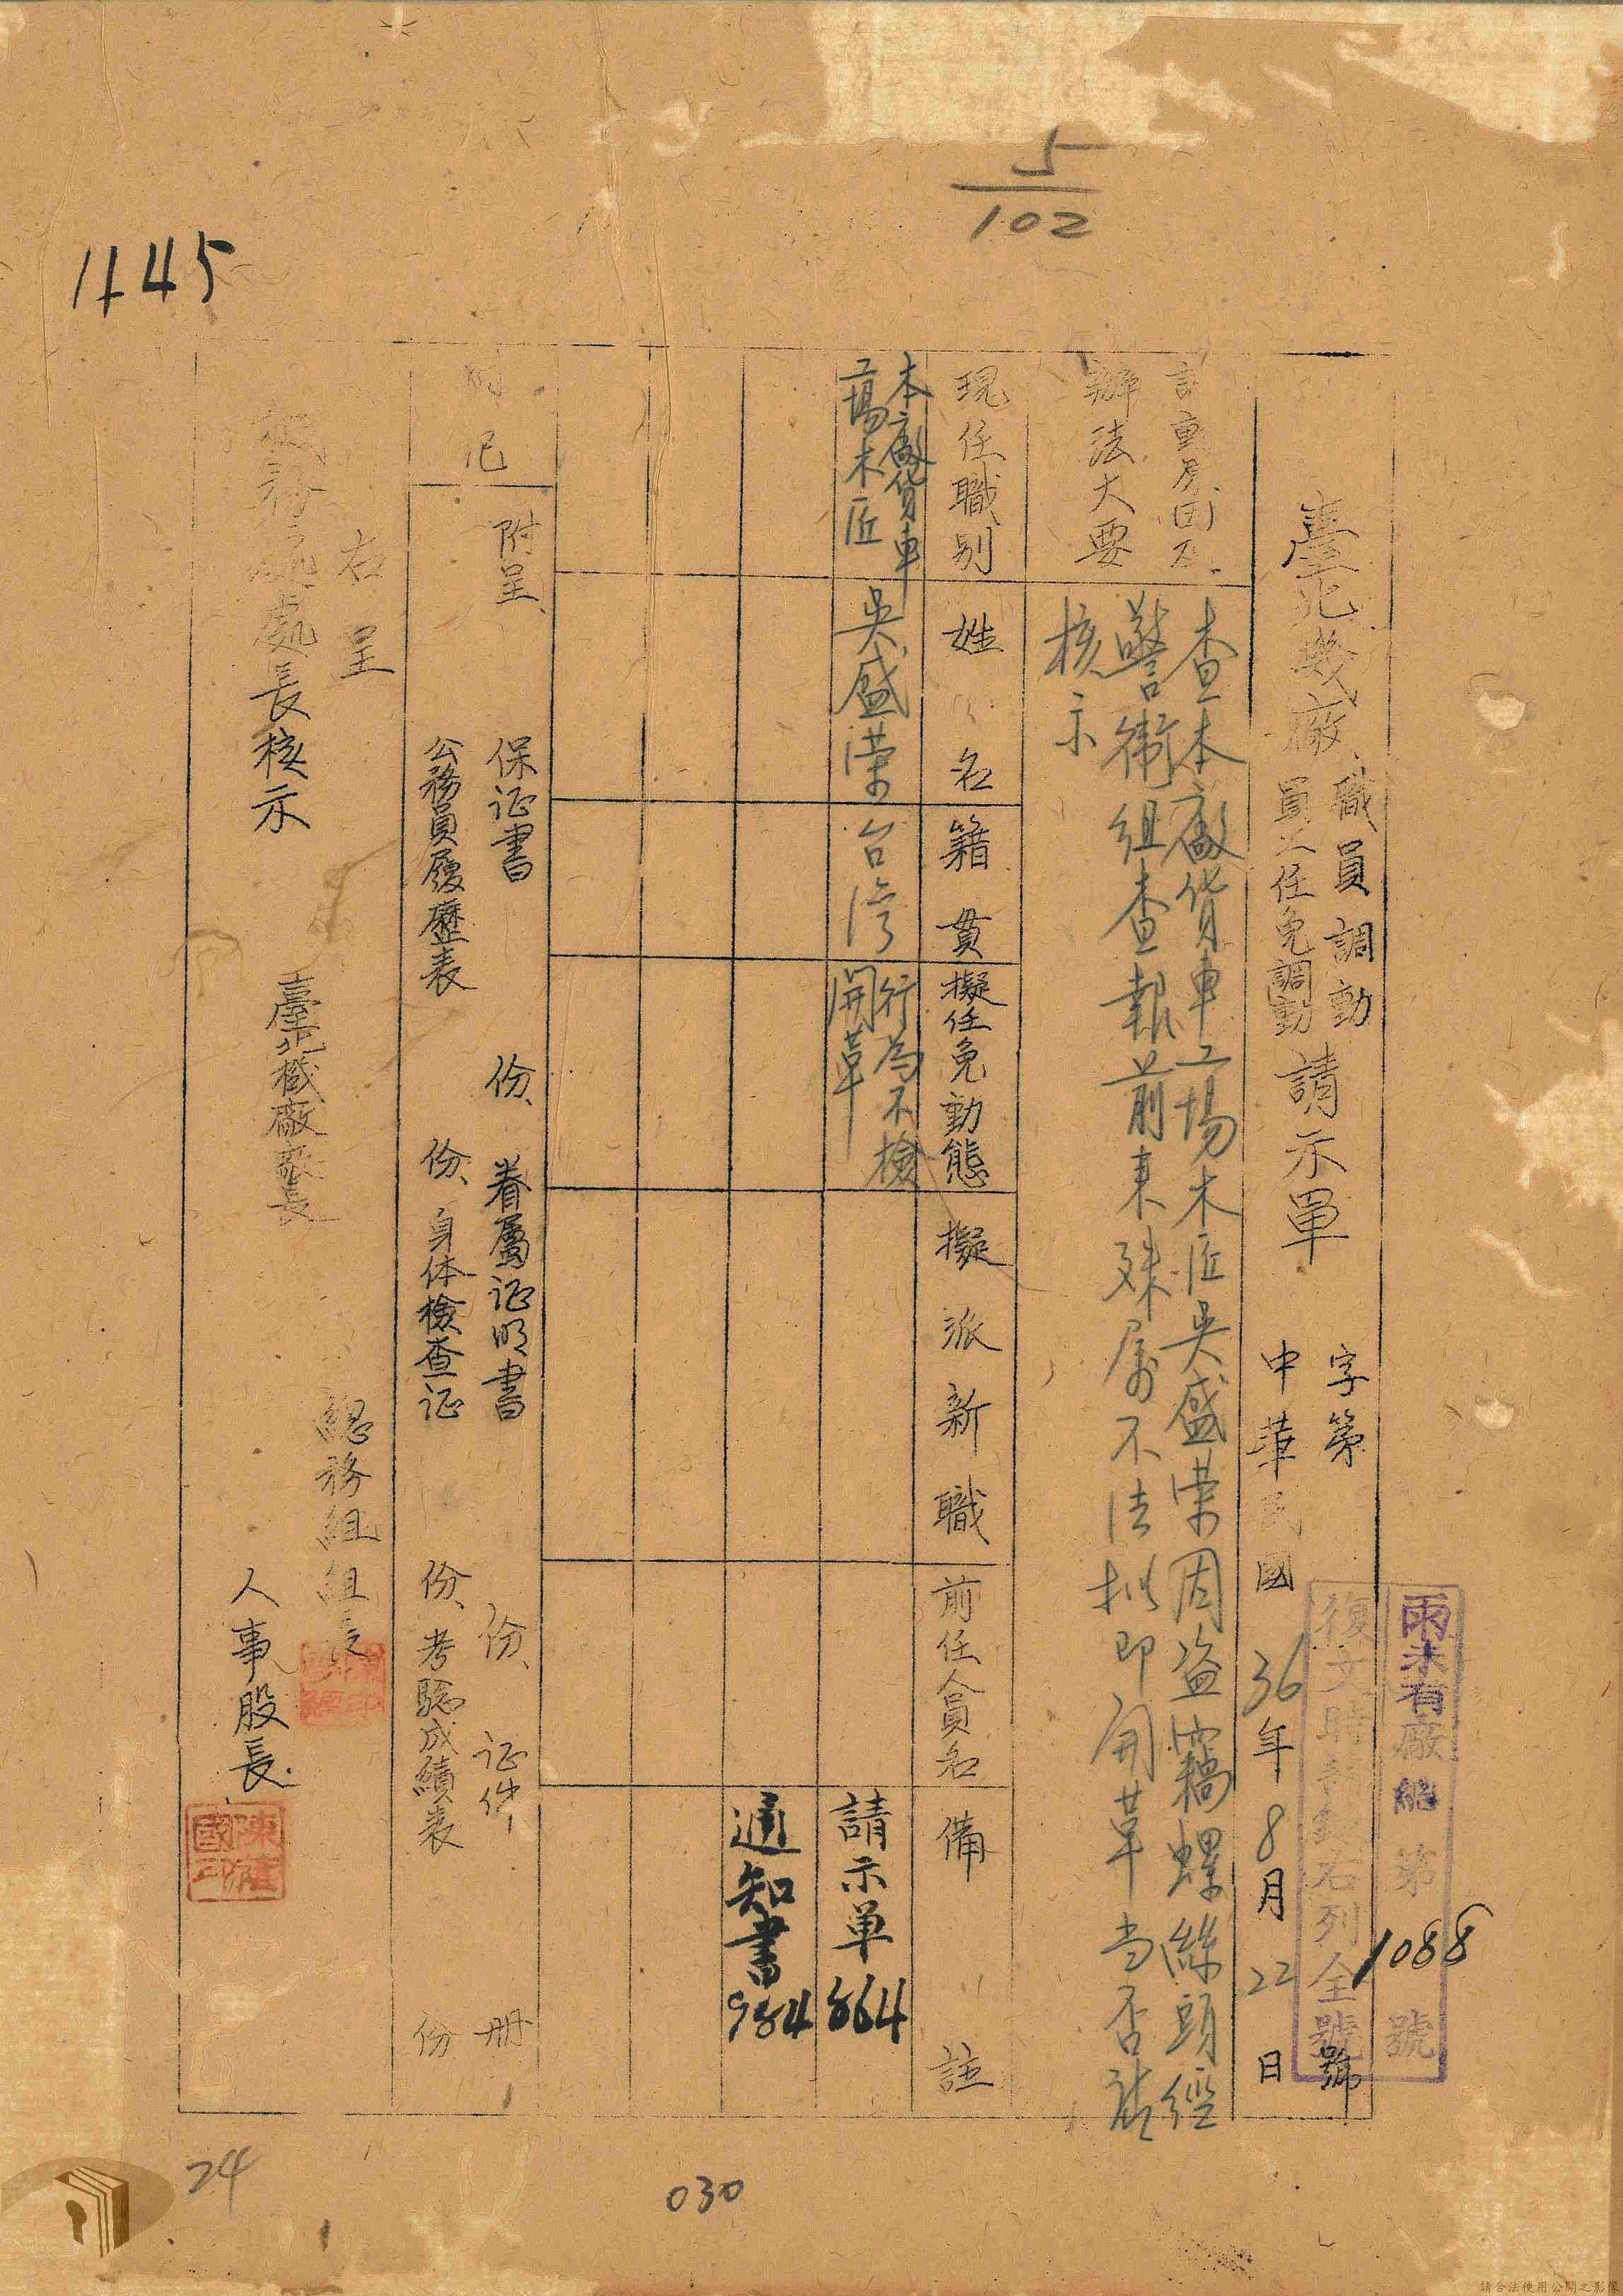 5/102
1145
雨未有廠總第1088號
復文時請錄右列全號
字第 號
中華民國36年8月22日
臺北機廠
職員調動
員工任免調動
請示單
辦法大要
查本廠貨車工場木匠吳盛荣因盗竊螺絲頭經
警衛組查報前来殊屬不法拟即開革当否請
核示
現任職別
姓名
籍貫
擬任免動態
擬派新職
前任人員名
備註
本廠貨車
工場木匠
吳盛荣
台湾
行為不檢
開革
請示单864
通知書984
附記
附呈、保证書 份、眷屬证明書 份、证件 册
公務員履歷表 份、身体檢查证 份、考驗成績表 份
右呈
處長核示
臺北機廠廠長
總務組組長
人事股長
陳
國印
24
030
請合法使用公開之影像